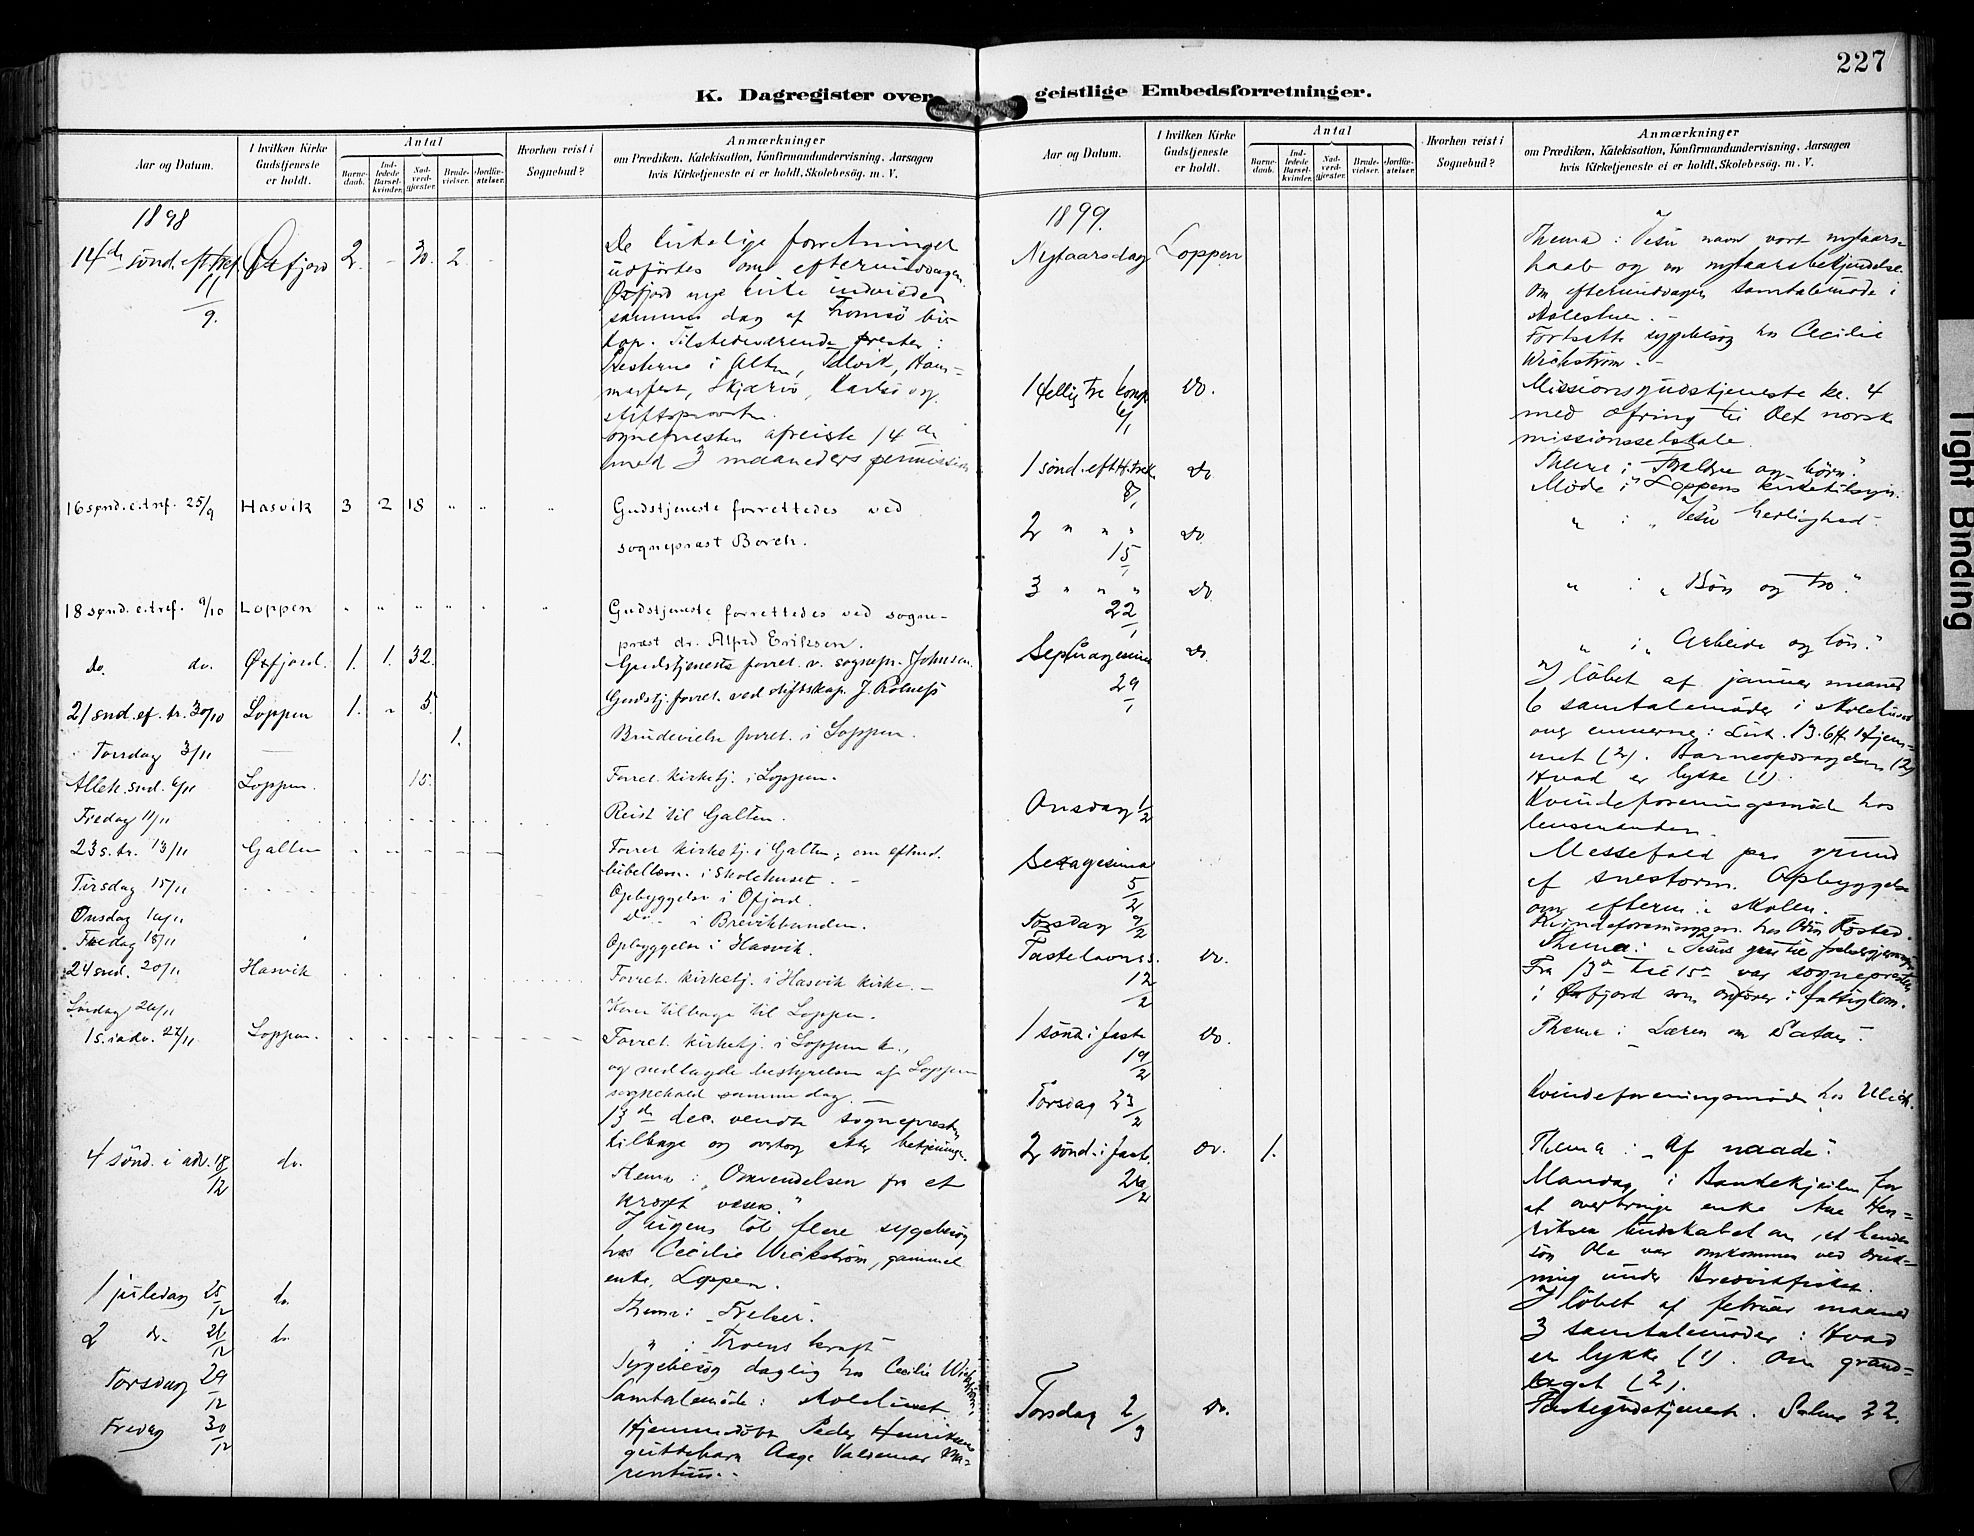 227
K. Dagregister over geistlige Embedsforretninger.
Aar og Datum.
I hvilken Kirke Gudstjeneste er holdt.
Antal
Barnedaab.
Indledede Barselkvinder.
Nadverdgjester.
Brudevielser.
Jordfæstelser.
Hvorhen reist i Sognebud?
Anmærkninger
om Prædiken, Katekisation, Konfirmandundervisning, Aarsagen
hvis Kirketjeneste ei er holdt, Skolebesøg. m. V.
1898
14de sönd. eft. tref. 11/9. Øxfjord 2. - 30. 2. -
De kirkelige forretninger
udförtes om eftermiddagen
Øxfjord nye kirke indviedes
samme dag af Tromsö bis-
kop. Tilstedeværende prester:
Presterne i Alten, Talvik, Ham-
merfest, Skjærvö, Karlsö og
stiftsprovsten.
sognepresten afreiste 14de
med 3 maaneders permission
16 sønd. e. tref. 25/9 Hasvik 3 2 18 " " "
Gudstjeneste forrettedes ved
sogneprest Borch.
18 sønd. e. tref. 9/10 Loppen " " " " " "
Gudstjeneste forrettedes ved sogne-
prest dr. Alfred Eriksen.
do. do. Øxfjord. 1. 1. 32.
Gudstjeneste forret. v. sognepr. Johnsen.
21 snd. ef. tr. 30/10 Loppen 1. - 5.
Gudstj. forret. ved stiftskap. J.
Torsdag 3/11 — 1.
Brudevielse forret. i Loppen.
Alleh. snd. 6/11 Loppen. 15.
Forret. kirketj. i Loppen.
Fredag 11/11
Reist til Galten.
23 s. tr. 13/11 Galten
Forret. kirketj. i Galten; om eftmd.
bibellæsn. i Skolehuset. -
Tirsdag 15/11
Opbyggelse i Øfjord.
Onsdag 16/11
Do - i Brevikbunden.
Fredag 18/11
Opbyggelse i Hasvik.
24 snd. 20/11 Hasvik
Forret. kirketj. i Hasvik kirke. -
Lördag 26/11
Kom tilbage til Loppen.
1 s. i adv. 27/11 Loppen.
Forret. kirketj. i Loppen k.,
og nedlagde bestyrelsen af Loppen
sognekald samme dag. -
13de dec. vendte sognepresten
tilbage og overtog atter betjeningen.
4 sönd. i adv. 18/12 do.
Thema: "Omvendelsen fra et
væsen."
I ugens löb flere sygebesög
hos Cecilie Wickström, gammel
enke, Loppen.
1 juledag 25/12 do.
Thema: "Frelser".
2 do. 26/12 do.
" : Troens kraft
Torsdag 29/12
Sygebesög daglig hos Cecilie Wickström.
Samtalemöde:
Fredag 30/12
Hjemmedöbt Peder Henriksens
guttebarn Aage Valdemar
Aar og Datum.
I hvilken Kirke Gudstjeneste er holdt.
Antal
Barnedaab.
Indledede Barselkvinder.
Nadverdgjester.
Brudevielser.
Jordfæstelser.
Hvorhen reist i Sognebud?
Anmærkninger
om Prædiken, Katekisation, Konfirmandundervisning, Aarsagen
hvis Kirketjeneste ei er holdt, Skolebesøg. m. V.
1899.
Nytaarsdag Loppen
Thema: "Jesu navn vort nytaars-
haab og vor nytaarsbekjendelse.
Om eftermiddagen samtalemöde i
skolestuen. -
Fortsatte sygebesög hos Cecilie
Wickström. -
Hellig tre kong. 6/1 do.
Missionsgudstjeneste kl. 4
med ofring til Det norske
missionsselskab.
1 sönd. eft. H. trek. 8/1 do
Thema: Forældre og börn."
Möde i Loppens kirketilsyn.
2 " " " 15/1 do
" : "Jesu herlighed.
3 " " " 22/1 do
" : "Bön og tro."
Septuagesima 29/1 do
" : "Arbeide og lön."
I löbet af januar maaned
6 samtalemöder i skolehuset
over emnerne: Hjem-
met (2). Barneopdragelsen (2)
Hvad er lykke (1).
Onsdag 1/2
Kvindeforeningsmöde hos
lensmanden.
Sexagesima 5/2
Messefald paa grund
af snestorm. Opbyggelse
om efterm. i skolen.
Torsdag 9/2
Kvindeforeningsm. hos
Fastelavns s. 12/2 do.
Thema: "Jesus
Fra 13de til 15de var sognepresten
i Øxfjord som ordförer i fattigkom.
1 sönd. i faste 19/2 do.
Thema: Læren om Satan".
Torsdag 23/2
Kvindeforeningsmöde hos Ulich.
2 sönd. i faste. 26/2 do. 1.
Thema: "Af naade".
Mandag i for
at overbringe enke Ane Hen-
riksen budskabet om, at hendes
sön Ole var omkommen ved druk-
ning under
I löbet af februar maaned
3 samtalemöder: Hvad
er lykke (1). Om grund-
laget (2).
Torsdag 2/3 do.
Fastegudstjeneste. Salme 22.
Tight Binding